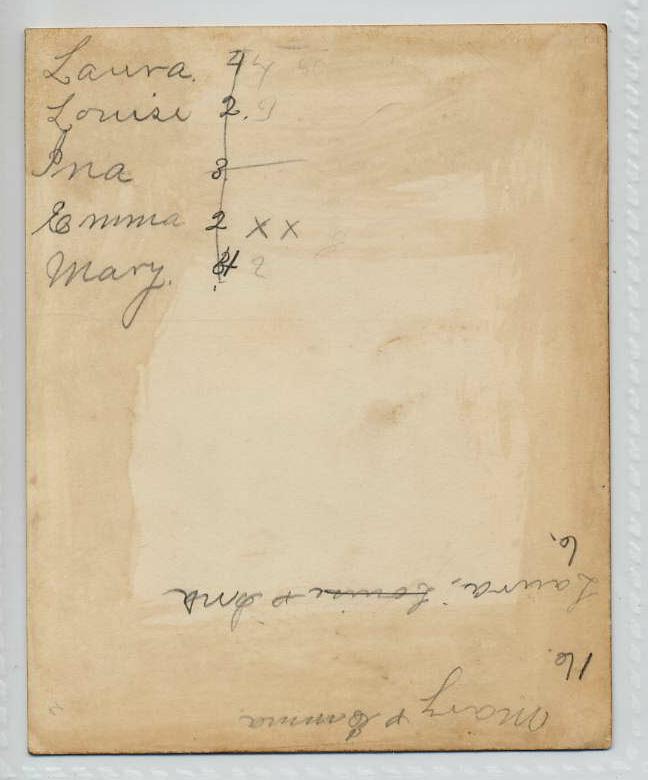 Laura. 4 4
Louise 2. 5
Ina 3
Emma 2 x x
Mary. 4 2
Mary & Emma
16.
Laura, Louise & Ina
6.